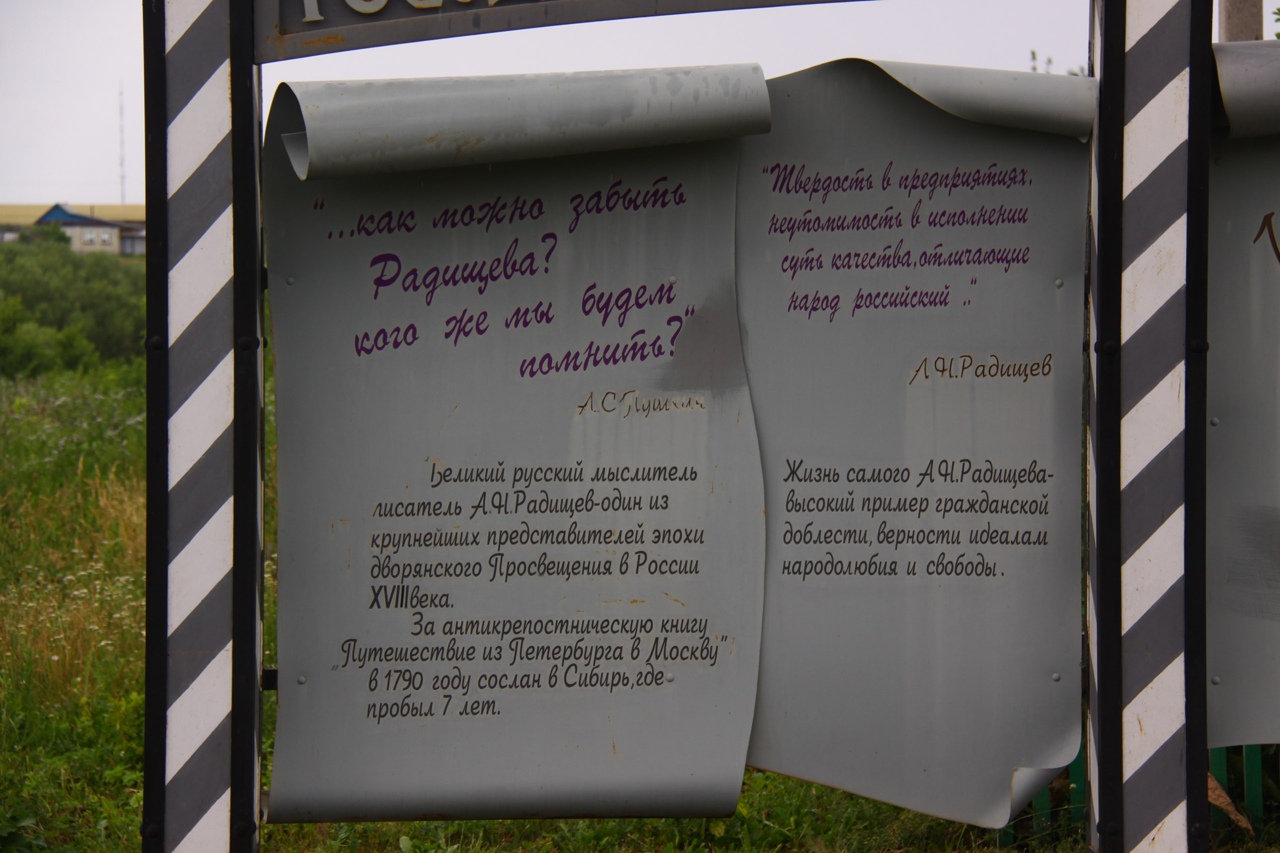 "...как можно забыть
Радищева?
кого же мы будем
помнить?"
А.С Пушкин
Великий русский мыслитель
писатель А.Н.Радищев-один из
крупнейших представителей эпохи
дворянского Просвещения в России
XVIII века.
За антикрепостническую книгу
„Путешествие из Петербурга в Москву"
в 1790 году сослан в Сибирь,где
пробыл 7 лет.
"Твердость в предприятиях,
неутомимость в исполнении
суть качества,отличающие
народ российский .."
А.Н.Радищев
Жизнь самого А.Н.Радищева-
высокий пример гражданской
доблести, верности идеалам
народолюбия и свободы.